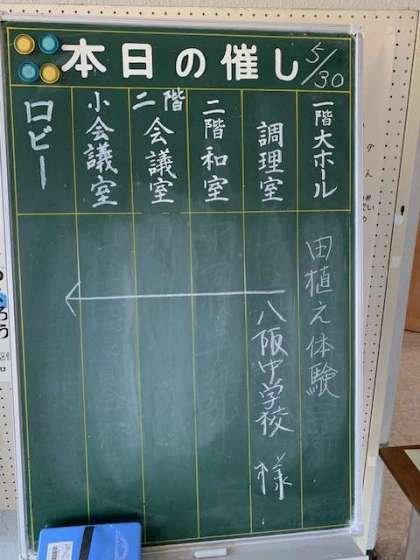 本日の催し
5/30
一階大ホール
調理室
二階和室
二階会議室
小会議室
ロビー
田植え体験
八阪中学校 様